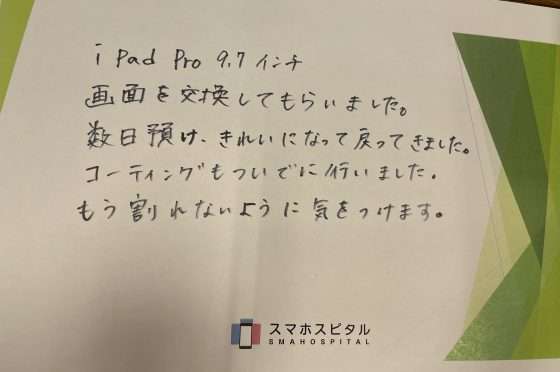 iPad Pro 9.7インチ
画面を交換してもらいました。
数日預け、きれいになって戻ってきました。
コーティングもついでに行いました。
もう割れないように気をつけます。
スマホスピタル
SMAHOSPITAL